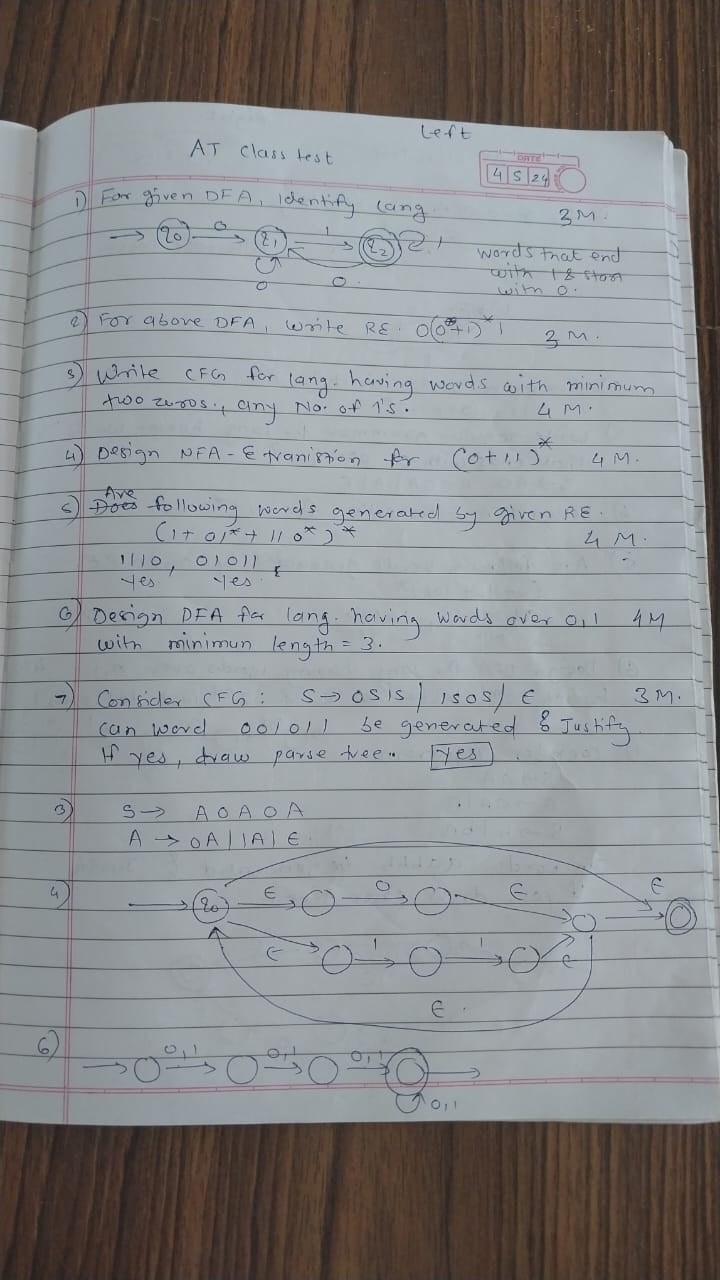 Left
AT class test
DATE
4 5 24
1) For given DFA, identify lang. 3M.
q0 0 q1 1 q2 1
0 0
words that end
with 1 & start
with 0.
2) For above DFA, write RE. 0(0*+1)*1 3M.
3) Write CFG for lang. having words with minimum
two zeros., any No. of 1's. 4M.
4) Design NFA-ε tranistion for (0+11)* 4M.
5) Does Are following words generated by given RE.
(1+01*+110*)* 4M.
1110, 01011
Yes Yes
6) Design DFA for lang. having words over 0,1 4M
with minimun length = 3.
7) Consider CFG: S→0S1S/1S0S/ε 3M.
can word 001011 be generated & Justify
If yes, draw parse tree. Yes
3) S→ A0A0A
A → 0A|1A|ε.
4) q0 ε 0 ε ε
ε 1 1 ε
ε.
6) 0,1 0,1 0,1
0,1